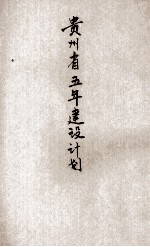 贵州省五年建设计划